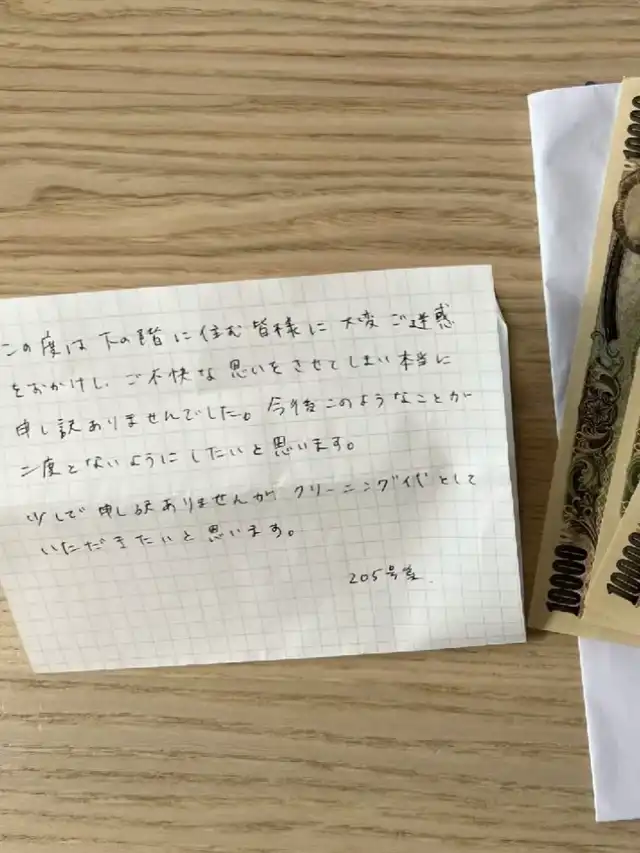 この度は下の階に住む皆様に大変ご迷惑
をおかけし、ご不快な思いをさせてしまい本当に
申し訳ありませんでした。今後このようなことが
二度とないようにしたいと思います。
少しで申し訳ありませんが クリーニング代として
いただきたいと思います。
205号室
10000
10000
10000